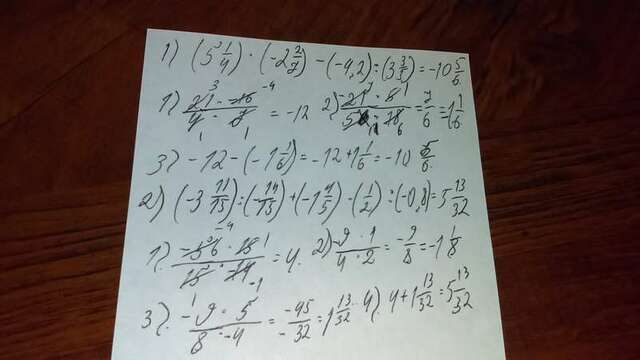 1) (5 1/4) · (-2 2/7) - (-4,2) : (3 3/5) = -10 5/6
1) 21 · -16 / 4 · 7 = -12 2) -21 · 5 / 5 · 18 = 7/6 = 1 1/6
3) -12 - (-1 1/6) = -12 + 1 1/6 = -10 5/6
2) (-3 11/15) : (-14/15) + (-1 4/5) · (1/2) : (-0,8) = 5 13/32
1). -56 · 15 / 15 · -14 = 4. 2) -9 · 1 / 4 · 2 = -9/8 = -1 1/8
3). -9 · 5 / 8 · -4 = -45/-32 = 1 13/32 4). 4 + 1 13/32 = 5 13/32